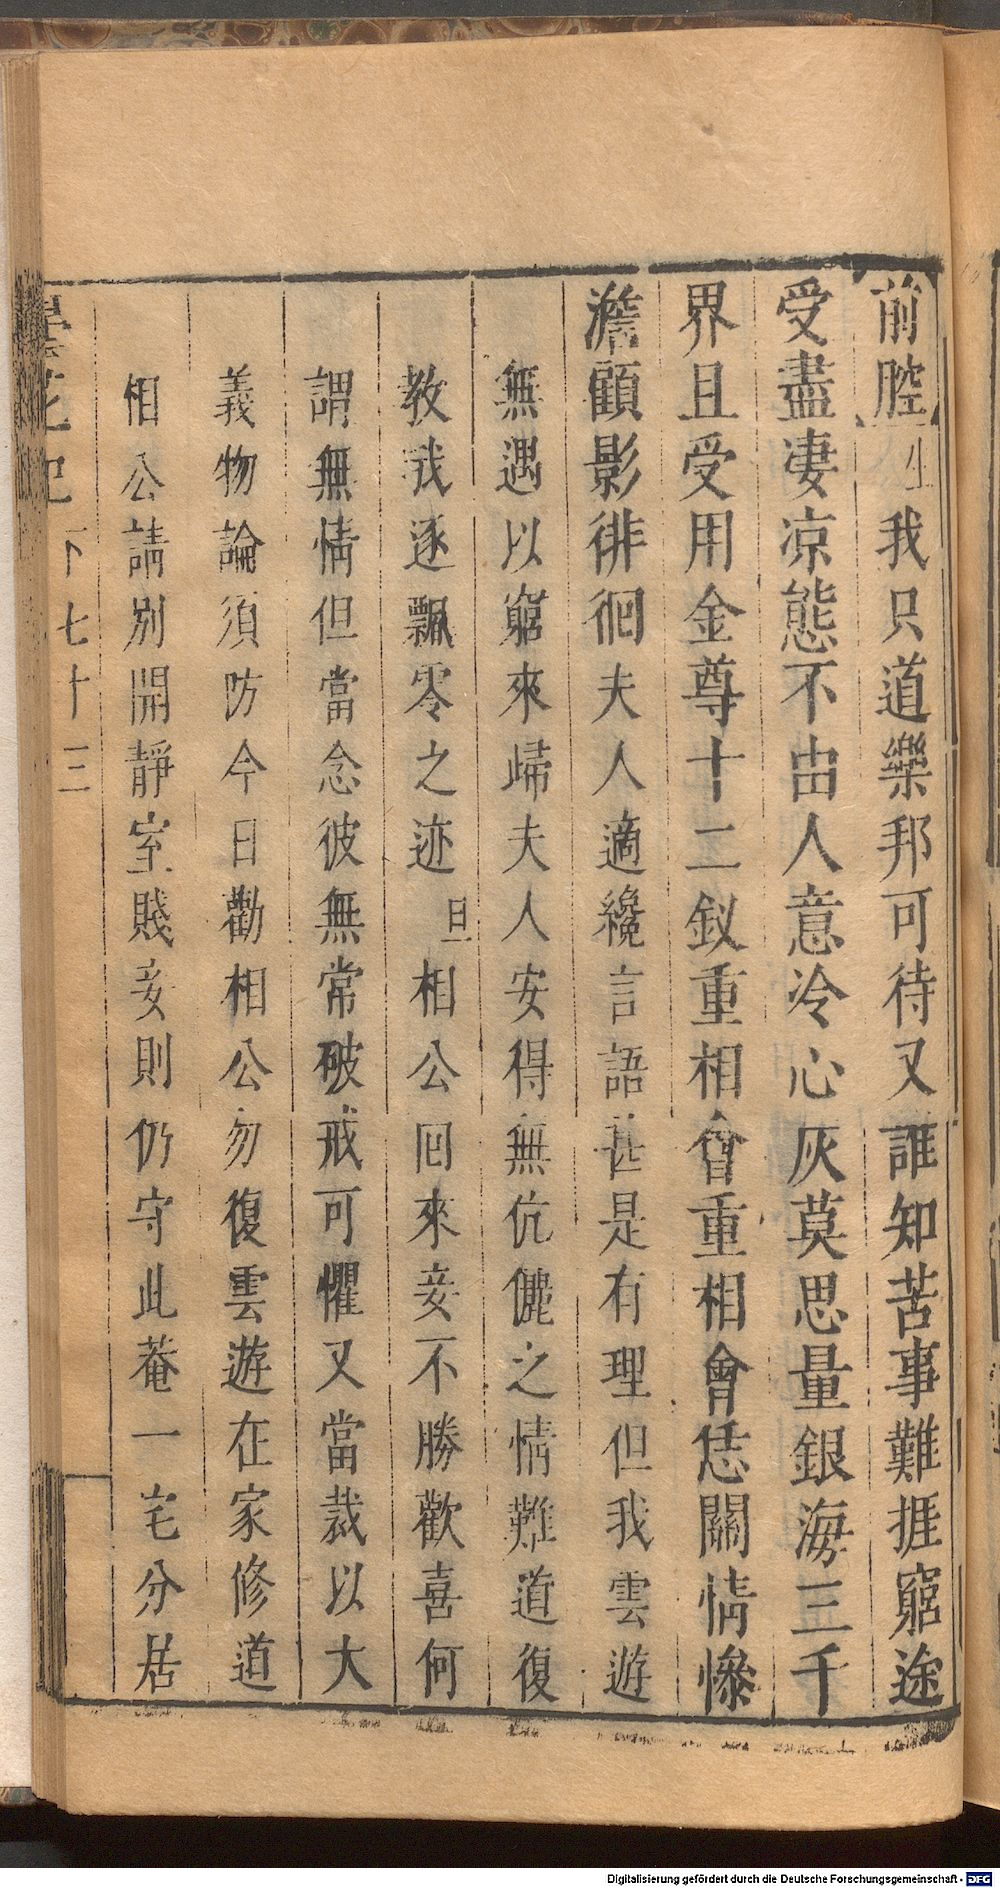 前腔 生 我只道樂邦可待又誰知苦事難捱窮途
受盡凄凉態不由人意冷心灰莫思量銀海三千
界且受用金尊十二釵重相會重相會恁關情慘
澹顧影徘徊夫人適纔言語甚是有理但我雲遊
無遇以窮來歸夫人安得無伉儷之情難道復
教我逐飄零之迹 旦 相公囘來妾不勝歡喜何
謂無情但當念彼無常破戒可懼又當裁以大
義物論須防今日勸相公勿復雲遊在家修道
相公請別開靜室賤妾則仍守此菴一宅分居
曇花記 下 七十三
Digitalisierung gefördert durch die Deutsche Forschungsgemeinschaft - DFG